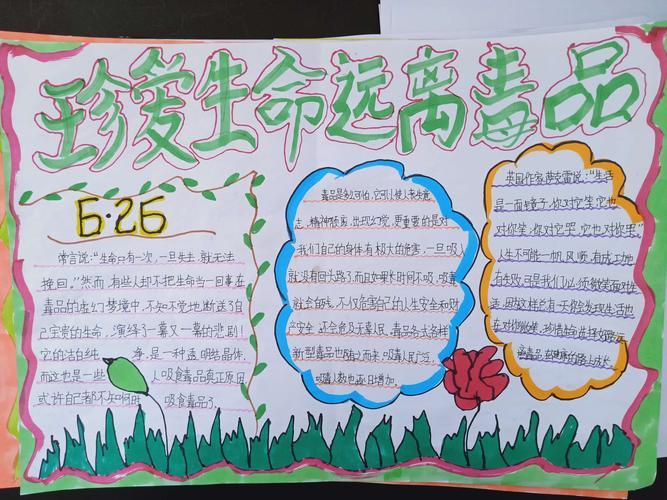 珍爱生命远离毒品
6·26
常言说:“生命只有一次,一旦失去,就无法
挽回。”然而,有些人却不把生命当一回事,在
毒品的虚幻梦境中,不知不觉地断送了自
己宝贵的生命,演绎了一幕又一幕的悲剧!
它的洁白纯净,是一种透明结晶体,
而这也是一些人吸食毒品真正原因,
或许自己都不知何时吸食毒品了
毒品是多么可怕,它可以使人丧失意
志,精神颓废,出现幻觉,更重要的是对
我们自己的身体有极大的危害,一旦吸入
就没有回头路了而且如果长时间不吸,吸毒
就会的残,不仅危害自己的人生安全和财
产安全,还会危及无辜人民,毒品各式各样
新型毒品也随之而来,吸毒人民广泛,
吸毒人数也逐日增加。
英国作家萨克雷说:“生活
是一面镜子,你对它笑,它也
对你笑,你对它哭,它也对你哭”
人生不可能一帆风顺,有成功也
有失败,可是我们必须微笑面对生
活,因这样总有一天你会发现生活也
在对你微笑,珍惜生命